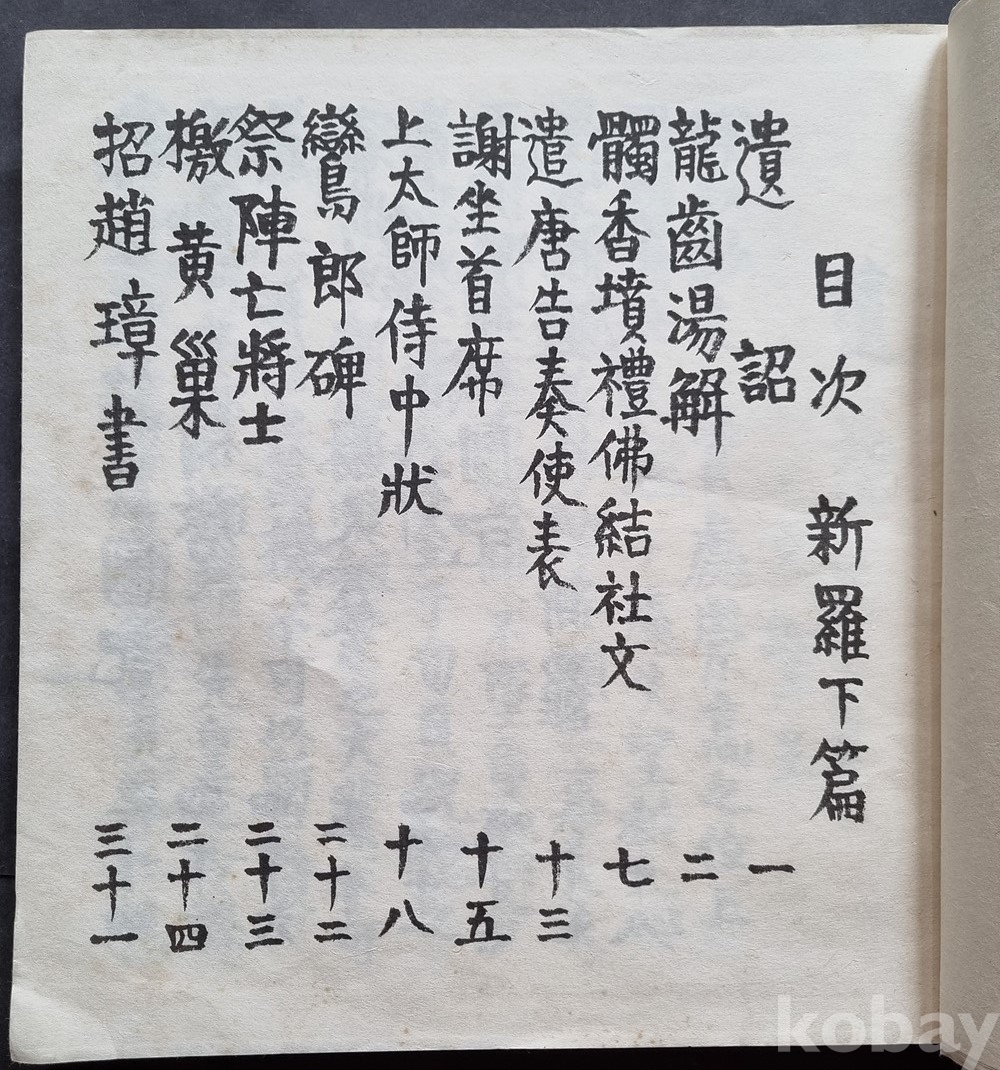 目次 新羅下篇
遺詔 一
龍齒湯解 二
髑香墳禮佛結社文 七
遣唐告奏使表 十三
謝坐首席 十五
上太師侍中狀 十八
鸞郎碑 二十二
祭陣亡將士 二十三
檄黃巢 二十四
招趙璋書 三十一
kobay